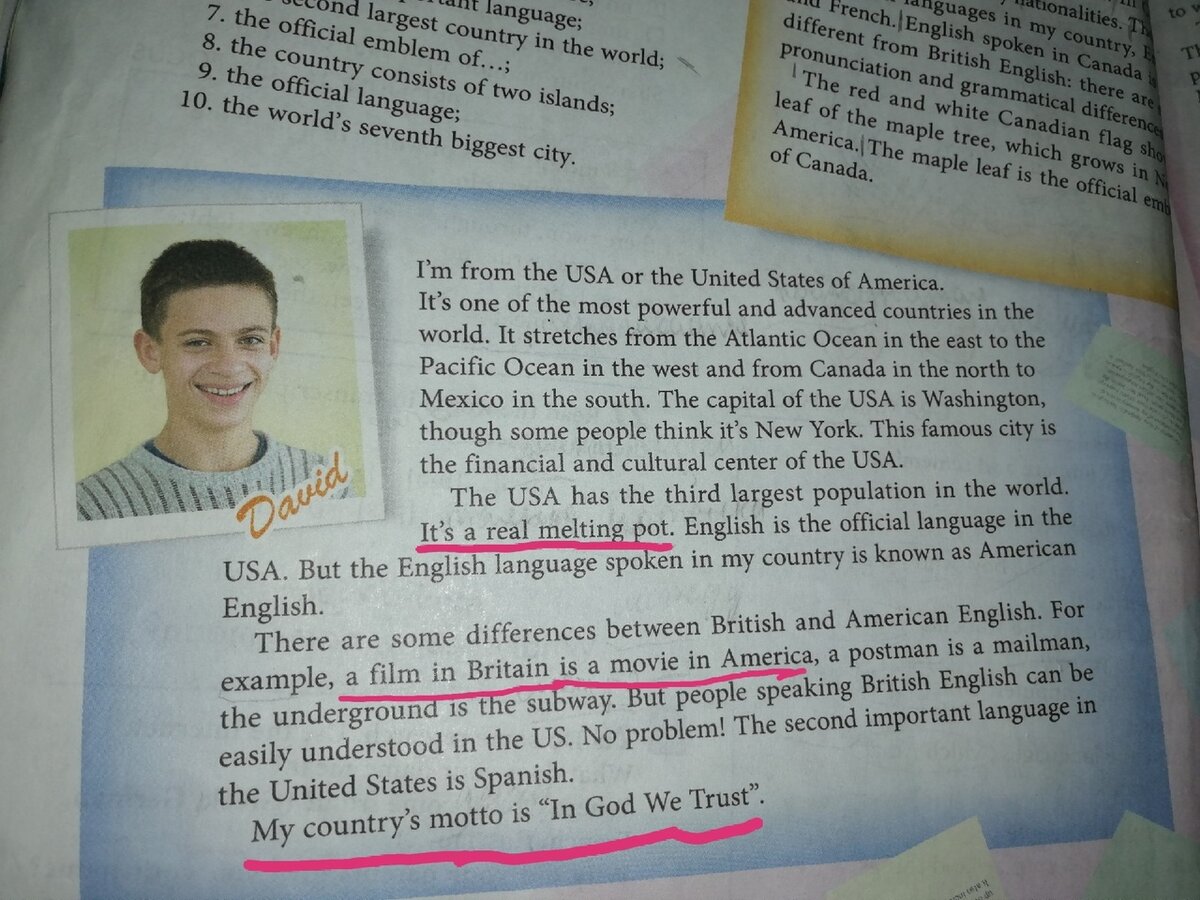 language;
second largest country in the world;
7. the official emblem of...;
8. the country consists of two islands;
9. the official language;
10. the world's seventh biggest city.
nationalities.
languages in my country,
and French. English spoken in Canada
different from British English: there are
pronunciation and grammatical
The red and white Canadian flag
leaf of the maple tree, which grows in
America. The maple leaf is the official
of Canada.
David
I'm from the USA or the United States of America.
It's one of the most powerful and advanced countries in the
world. It stretches from the Atlantic Ocean in the east to the
Pacific Ocean in the west and from Canada in the north to
Mexico in the south. The capital of the USA is Washington,
though some people think it's New York. This famous city is
the financial and cultural center of the USA.
The USA has the third largest population in the world.
It's a real melting pot. English is the official language in the
USA. But the English language spoken in my country is known as American
English.
There are some differences between British and American English. For
example, a film in Britain is a movie in America, a postman is a mailman,
the underground is the subway. But people speaking British English can be
easily understood in the US. No problem! The second important language in
the United States is Spanish.
My country's motto is "In God We Trust".